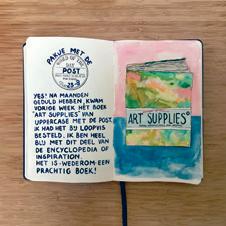 PAKJE MET DE
POST
28-9
YES! NA MAANDEN
GEDULD HEBBEN, KWAM
VORIGE WEEK HET BOEK
"ART SUPPLIES" VAN
UPPERCASE MET DE POST.
IK HAD HET BIJ LOOPVIS
BESTELD. IK BEN HEEL
BLIJ MET DIT DEEL VAN
DE ENCYCLOPEDIA OF
INSPIRATION.
HET IS WEDEROM EEN
PRACHTIG BOEK!
ART SUPPLIES